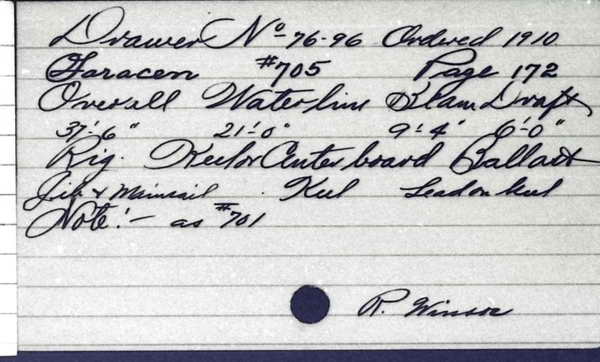 Drawer No 76-96 Ordered 1910
Saracen #705 Page 172
Overall Waterline Beam Draft
37'-6" 21'-0" 9'-4" 6'-0"
Rig. Keel or Centerboard Ballast
Jib & Mainsail . Keel Lead on keel
Note:- as #701
R. Winsor